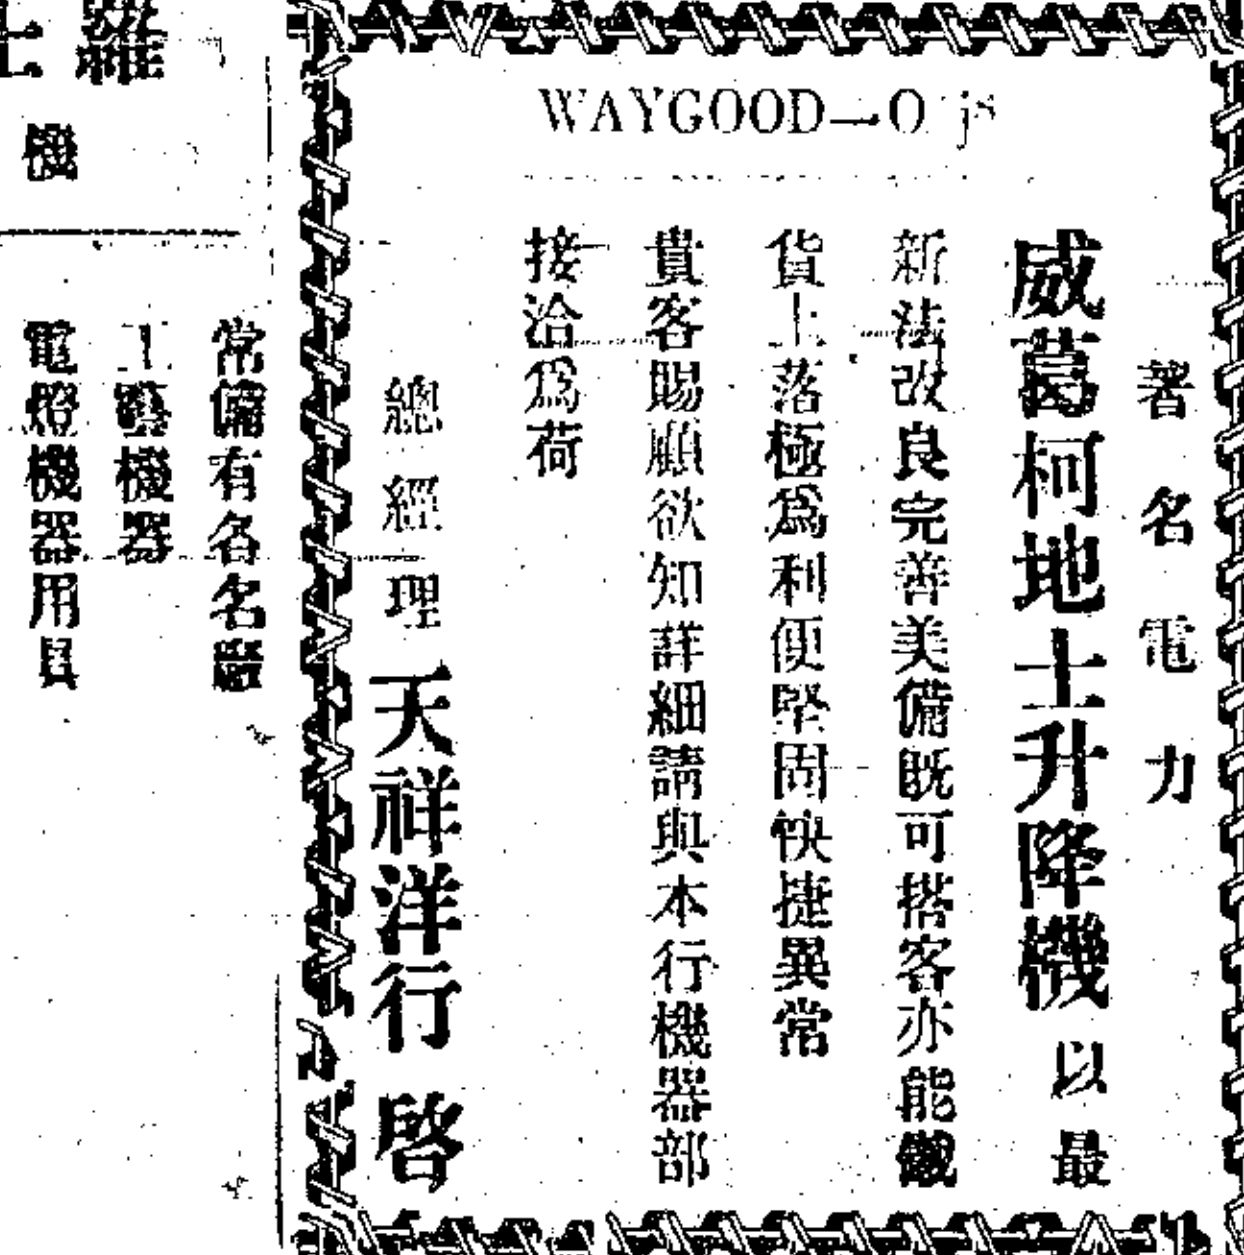 WAYGOOD—Otis
著名電力
威葛柯地士升降機以最
新法改良完善美備既可搭客亦能儎
貨上落極為利便堅固快捷異常
貴客賜顧欲知詳細請與本行機器部
接洽為荷
總經理天祥洋行啓
機
常備有各名廠
工藝機器
電燈機器用具